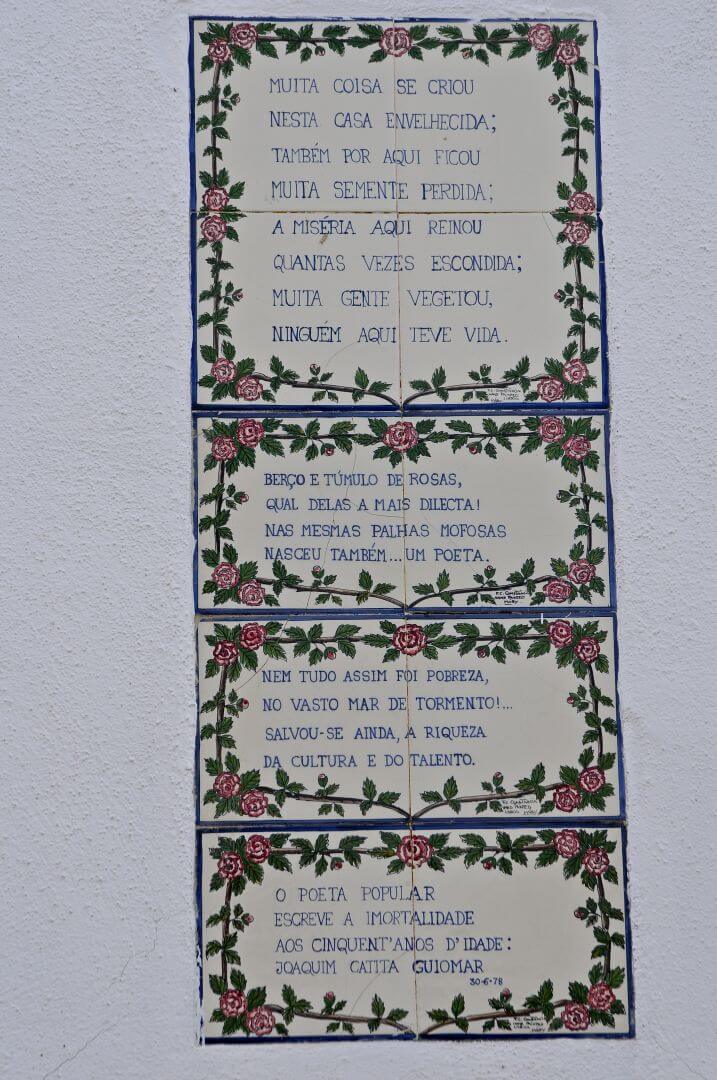 MUITA COISA SE CRIOU
NESTA CASA ENVELHECIDA;
TAMBÉM POR AQUI FICOU
MUITA SEMENTE PERDIDA;
A MISÉRIA AQUI REINOU
QUANTAS VEZES ESCONDIDA;
MUITA GENTE VEGETOU,
NINGUÉM AQUI TEVE VIDA.
BERÇO E TÚMULO DE ROSAS,
QUAL DELAS A MAIS DILECTA!
NAS MESMAS PALHAS MOFOSAS
NASCEU TAMBÉM...UM POETA.
NEM TUDO ASSIM FOI POBREZA,
NO VASTO MAR DE TORMENTO!...
SALVOU-SE AINDA, A RIQUEZA
DA CULTURA E DO TALENTO.
O POETA POPULAR
ESCREVE A IMORTALIDADE
AOS CINQUENT'ANOS D'IDADE:
JOAQUIM CATITA GUIOMAR
30-6-78